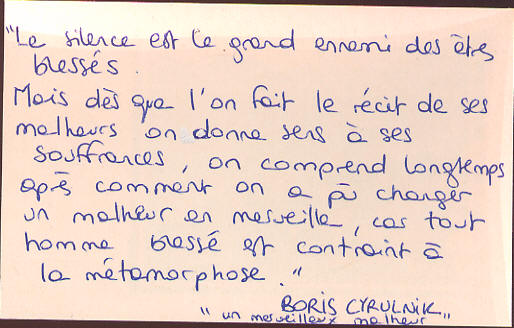 "Le silence est le grand ennemi des êtres
blessés.
Mais dès que l'on fait le récit de ses
malheurs on donne sens à ses
souffrances, on comprend longtemps
après comment on a pû changer
un malheur en merveille, car tout
homme blessé est contraint à
la métamorphose."
BORIS CYRULNIK
"un merveilleux malheur"